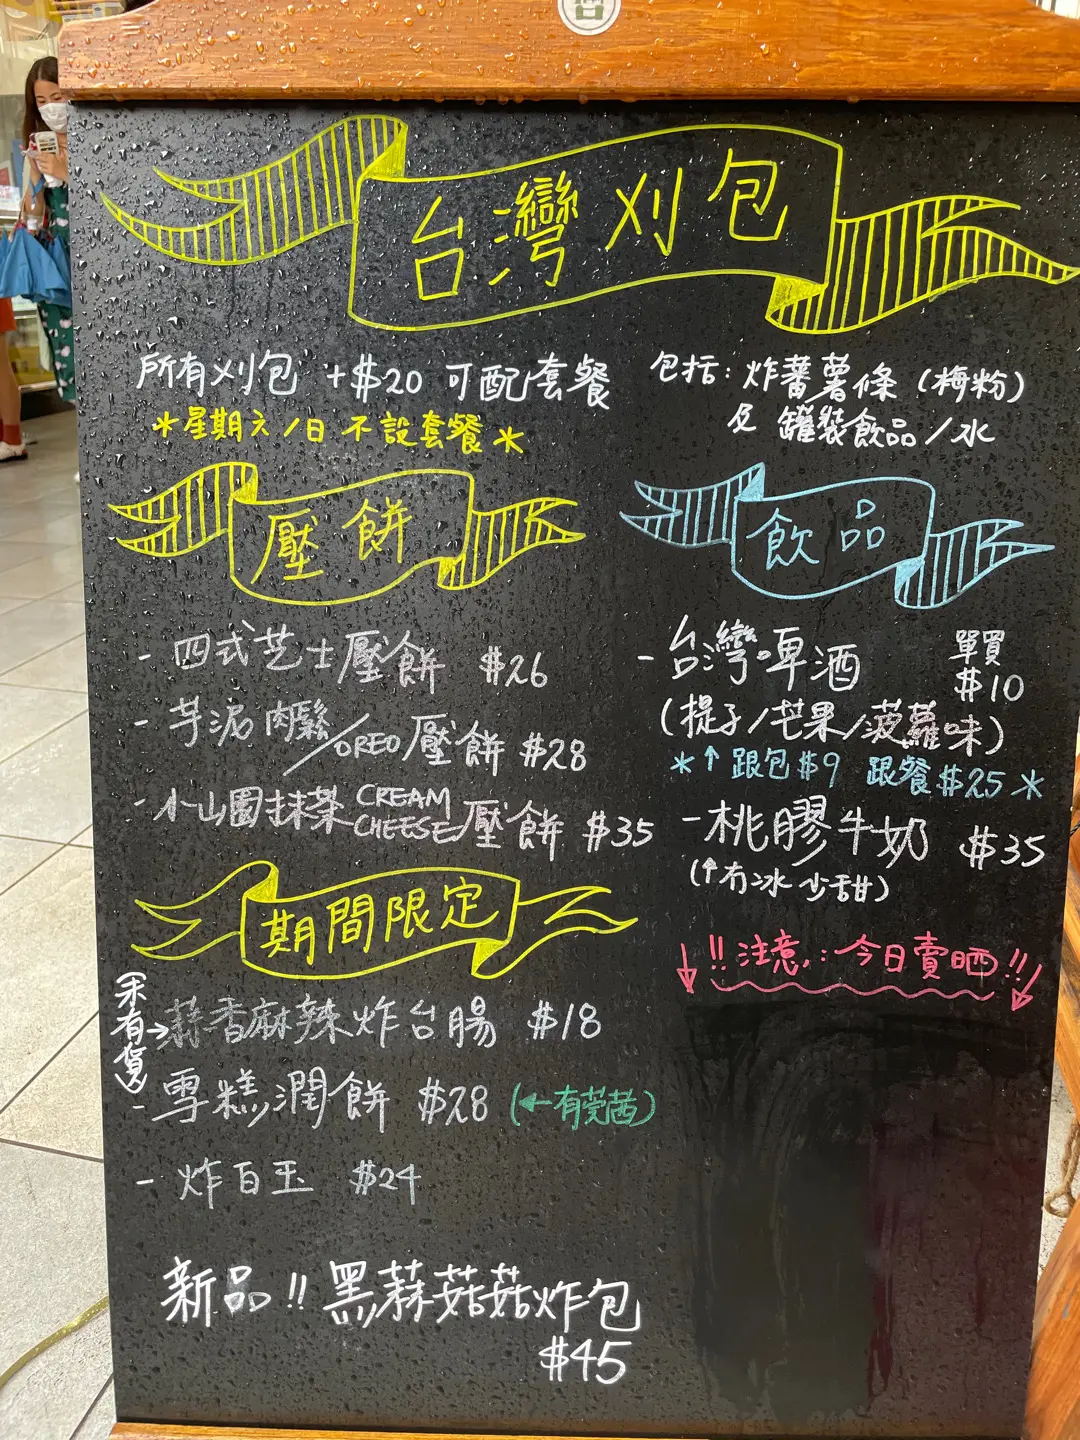 台灣刈包
所有刈包 +$20 可配套餐
*星期六/日 不設套餐*
包括: 炸蕃薯條 (梅粉)
及 罐裝飲品/水
壓餅
- 四式芝士壓餅 $26
- 芋泥肉鬆/OREO壓餅 $28
- 小山園抹茶CREAM CHEESE壓餅 $35
飲品
- 台灣啤酒 單買 $10
(提子/芒果/菠蘿味)
*↑跟包$9 跟餐$25*
- 桃膠牛奶 $35
(↑冇冰 少甜)
期間限定
(未有貨)→蒜香麻辣炸台腸 $18
- 雪糕潤餅 $28 (←有莞茜)
- 炸百玉 $24
↓!!注意:今日賣晒!!↓
新品!!黑蒜菇菇炸包
$45